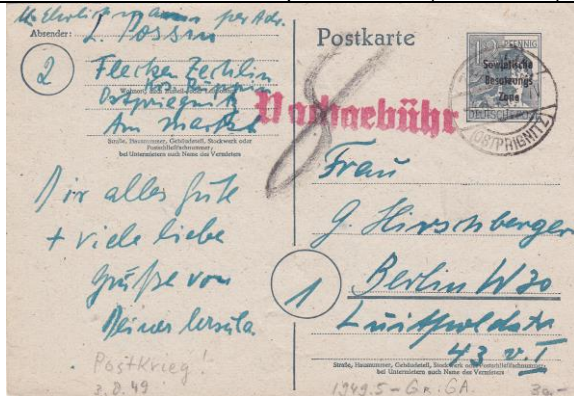 Ehrlichmann per Adr.
Absender: L. Possin
2
Flecken Zechlin
Ostprignitz
Am Markt
Straße, Hausnummer, Gebäudeteil, Stockwerk oder
Postschließfachnummer;
bei Untermietern auch Name des Vermieters
Dir alles Gute
+ viele liebe
Grüße von
Deiner Ursula
Postkrieg!
3.8.49
Postkarte
12 PFENNIG
Sowjetische
Besatzungs
Zone
DEUTSCHE POST
(OSTPRIGNITZ)
Nachgebühr
8
Frau
G. Hirschberger
1
Berlin W30
Luitpoldstr
43 v. I
Straße, Hausnummer, Gebäudeteil, Stockwerk oder Postschließfachnummer;
bei Untermietern auch Name des Vermieters
1949.5 - Gr. GA.
30.-